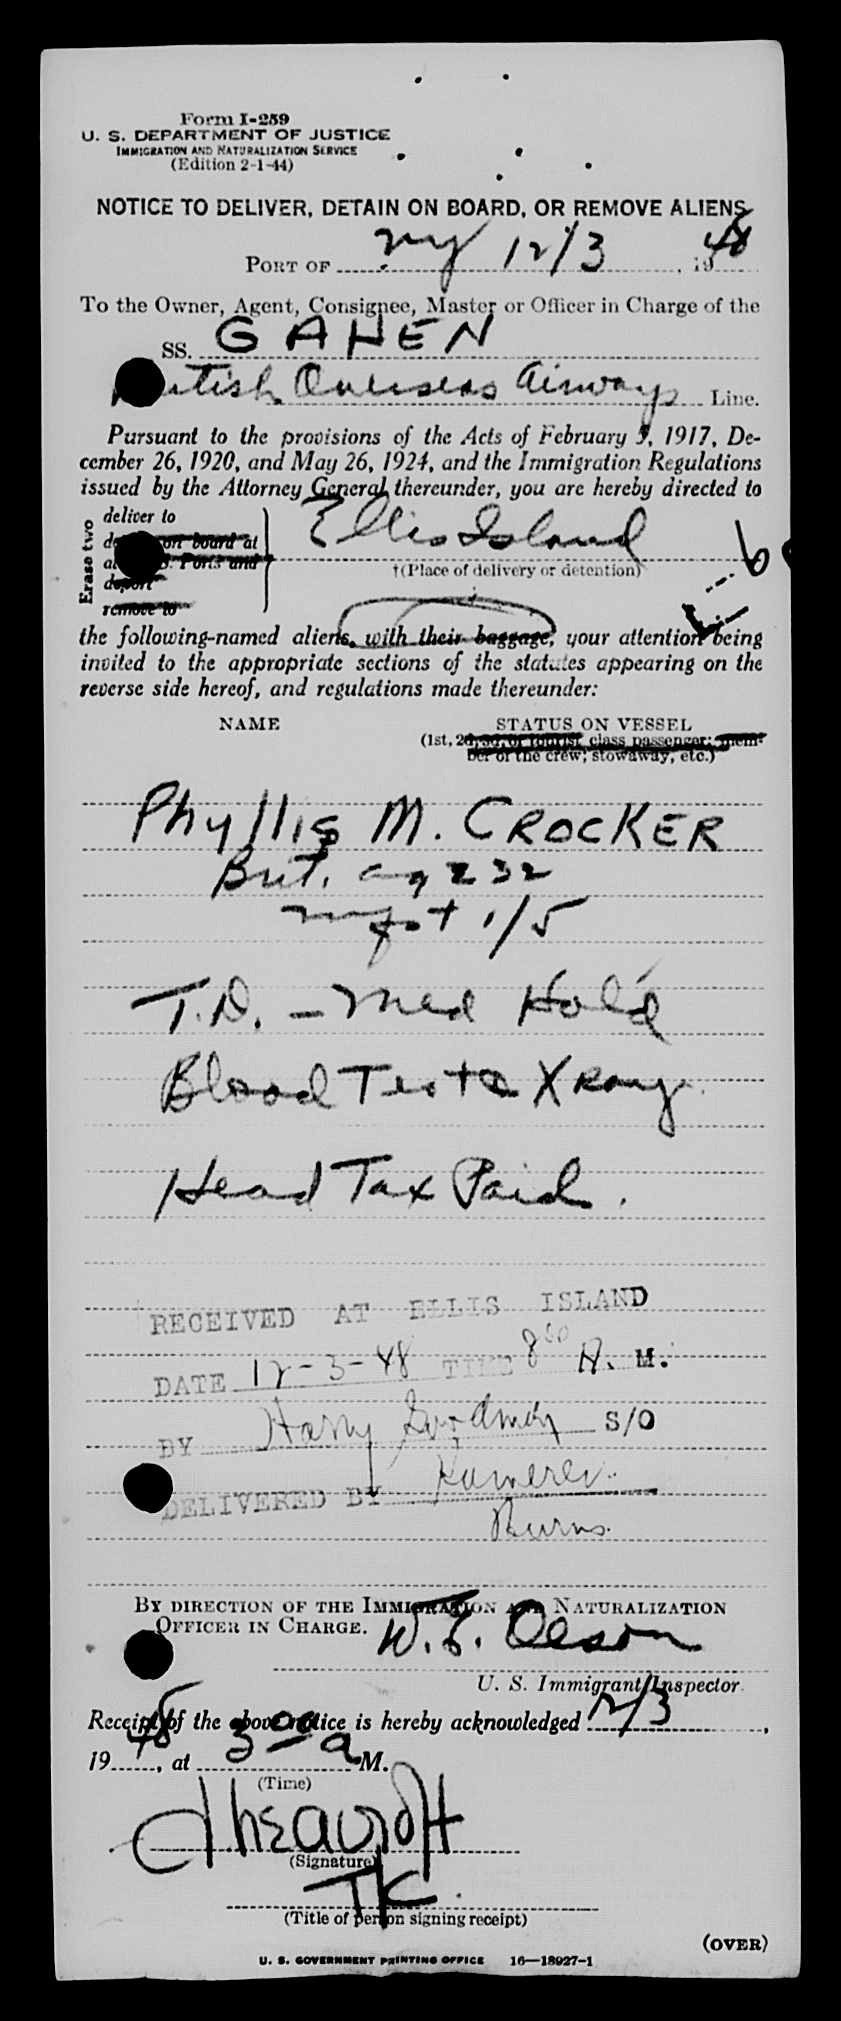 Form I-259
U. S. DEPARTMENT OF JUSTICE
IMMIGRATION AND NATURALIZATION SERVICE
(Edition 2-1-44)
NOTICE TO DELIVER, DETAIN ON BOARD, OR REMOVE ALIENS
PORT OF NY 12/3, 1948
To the Owner, Agent, Consignee, Master or Officer in Charge of the
SS. GAHEN
British Overseas Airways Line.
Pursuant to the provisions of the Acts of February 5, 1917, De-
cember 26, 1920, and May 26, 1924, and the Immigration Regulations
issued by the Attorney General thereunder, you are hereby directed to
Erase two
deliver to
on board at
Ports and
deport
remove to
Ellis Island
†(Place of delivery or detention)
the following-named aliens, with their baggage, your attention being
invited to the appropriate sections of the statutes appearing on the
reverse side hereof, and regulations made thereunder:
NAME
STATUS ON VESSEL
(1st, 2d, 3d, or tourist class passenger; mem-
ber of the crew; stowaway, etc.)
Phyllis M. CROCKER
Brit. 32
1/5
T.D. - Med Hold
Blood Test & X Ray
Head Tax Paid.
RECEIVED AT ELLIS ISLAND
DATE 12-3-48 TIME 8 00 A. M.
BY Harry Goodman S/O
DELIVERED BY
Burns.
BY DIRECTION OF THE IMMIGRATION AND NATURALIZATION
OFFICER IN CHARGE.
W. F. Olson
U. S. Immigrant Inspector
Receipt of the above notice is hereby acknowledged 12/3,
1948, at 3 00 a M.
(Time)
(Signature)
TK.
(Title of person signing receipt)
(OVER)
U. S. GOVERNMENT PRINTING OFFICE 16—18927-1